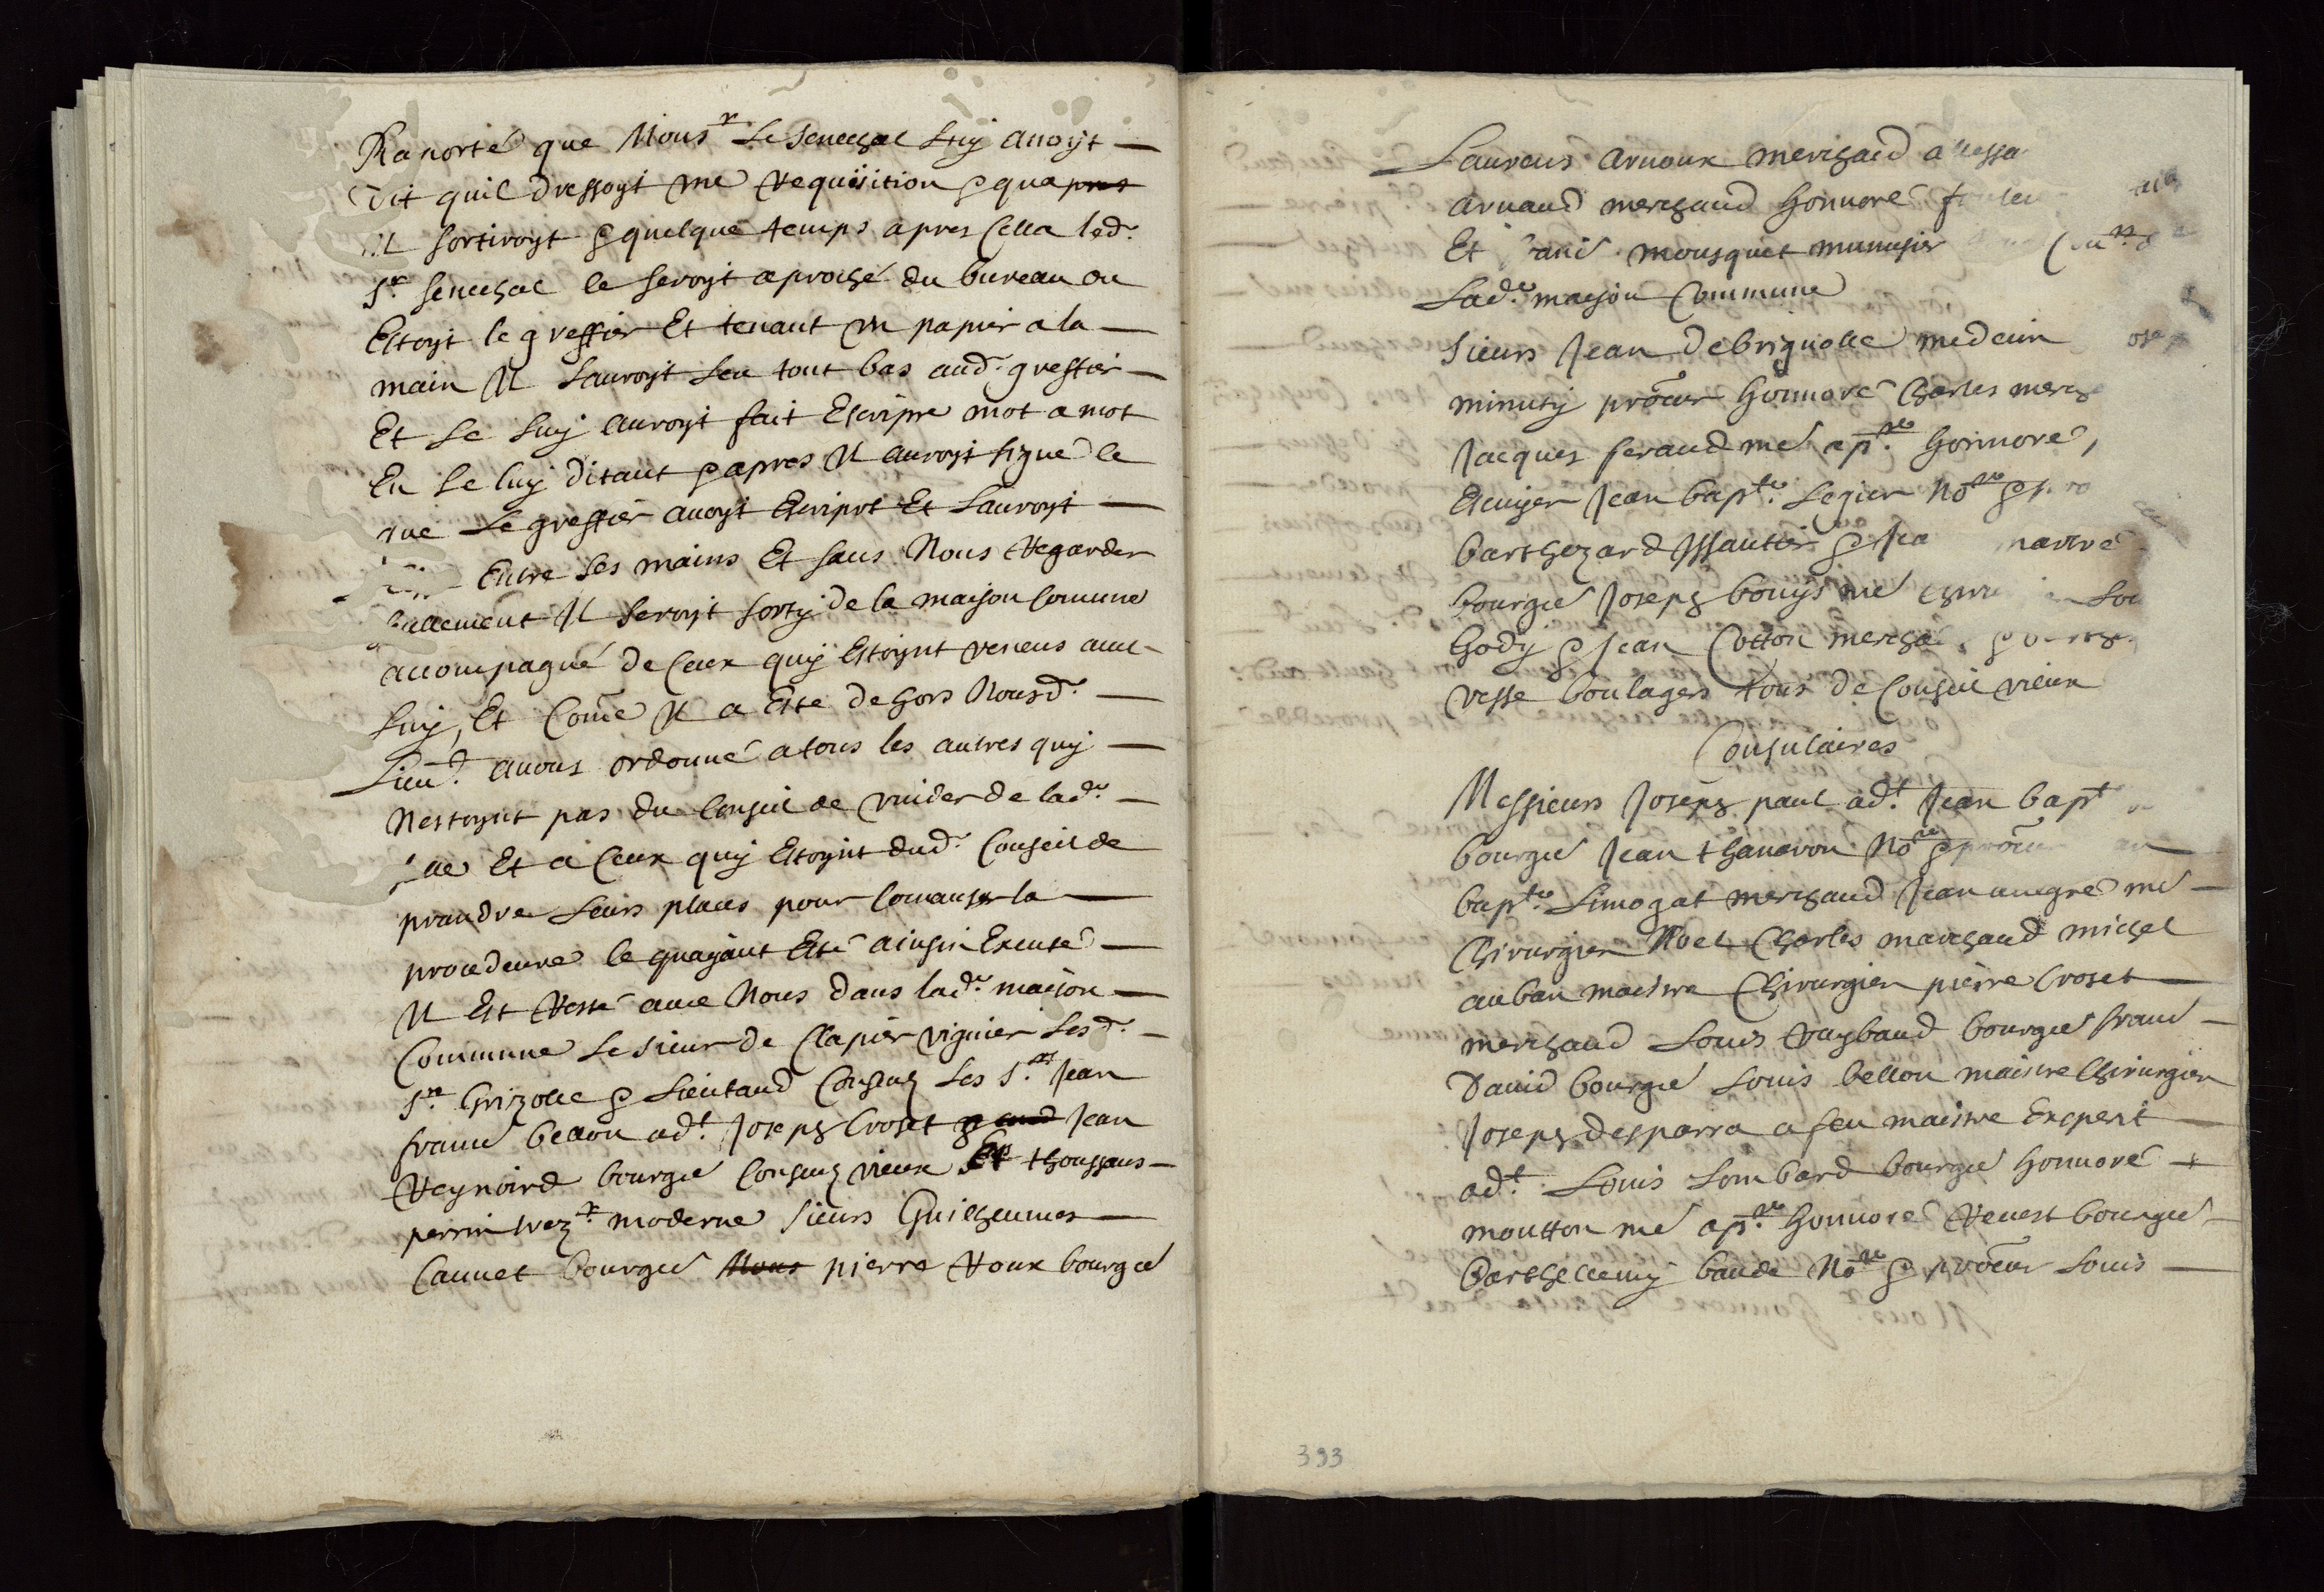 Raporté que Mons.r Le Senechal Luy avoyt —
Dit quil dressoyt une requisition & quapres
Il sortiroyt & quelque temps apres Cella led.
S.r Senechal se seroyt aproché du bureau ou
Estoyt le greffier Et tenant un papier a la —
main Il Lauroyt Leu tout bas aud. greffier —
Et Le Luy auroyt fait Escripre mot a mot
En Le luy Ditant & apres Il auroyt signé le
que Le greffier avoyt Escript Et Lauroyt —
Entre Ses mains Et sans Nous Regarder
Il seroyt sorty de la maison Comune
acompagné de Ceux quy Estoynt veneus avec
Luy, Et Come Il a Esté dehors Nousd. —
Lieut. avons ordonné a tous les autres quy —
Nestoynt pas du Conseil de vuider de lad.e —
Et a Ceux quy Estoynt dud. Conseil de
prandre Leurs places pour Comanser la —
procedeure Ce quayant Esté ainsin Executé —
Il Est Resté avec Nous dans lad.e maison —
Commune Le Sieur de Clapier viguier Lesd. —
S.rs Grizolle & Lieutaud Consulz Les S.rs Jean
Bellon ad.t Joseph Croset Jean
Reynoird bourge Consulz vieux Et thoussans —
perrin trez.r moderne Sieurs Guilheumes —
Cannet bourge Nous pierre Roux bourge
Laurens Arnoux merchand
Arnaud merchand Honnoré
Et mousquet munusier
Lad.e maison Commune
Sieurs Jean Debrignolle medecin
minuty procur Honnoré Charles merch
Jacques feraud me ap.re Honnoré
Escuyer Jean bap.te Legier No.re &
barthezard Issautier &
bourge Joseph bouys me
Gody & Jean Cotton mercha &
resse boulagers tous de Conseil vieux
Consulaires
Messieurs Joseph paul ad.t Jean bap.t
bourge Jean thanaron No.re & procur
bap.te Limogat merchand Jean auegre me —
Chirurgien Noel Charles marchand michel
auban maistre Chirurgien pierre Croset —
merchand Louis Raybaud bourge —
David bourge Louis bellon maistre Chirurgien
Joseph desparra a feu maistre Exsperit —
ad.t Louis Lombard bourge Honnoré —
moutton me ap.re Honnoré Revest bourge —
Barthellemy baude No.re & procur Louis —
393